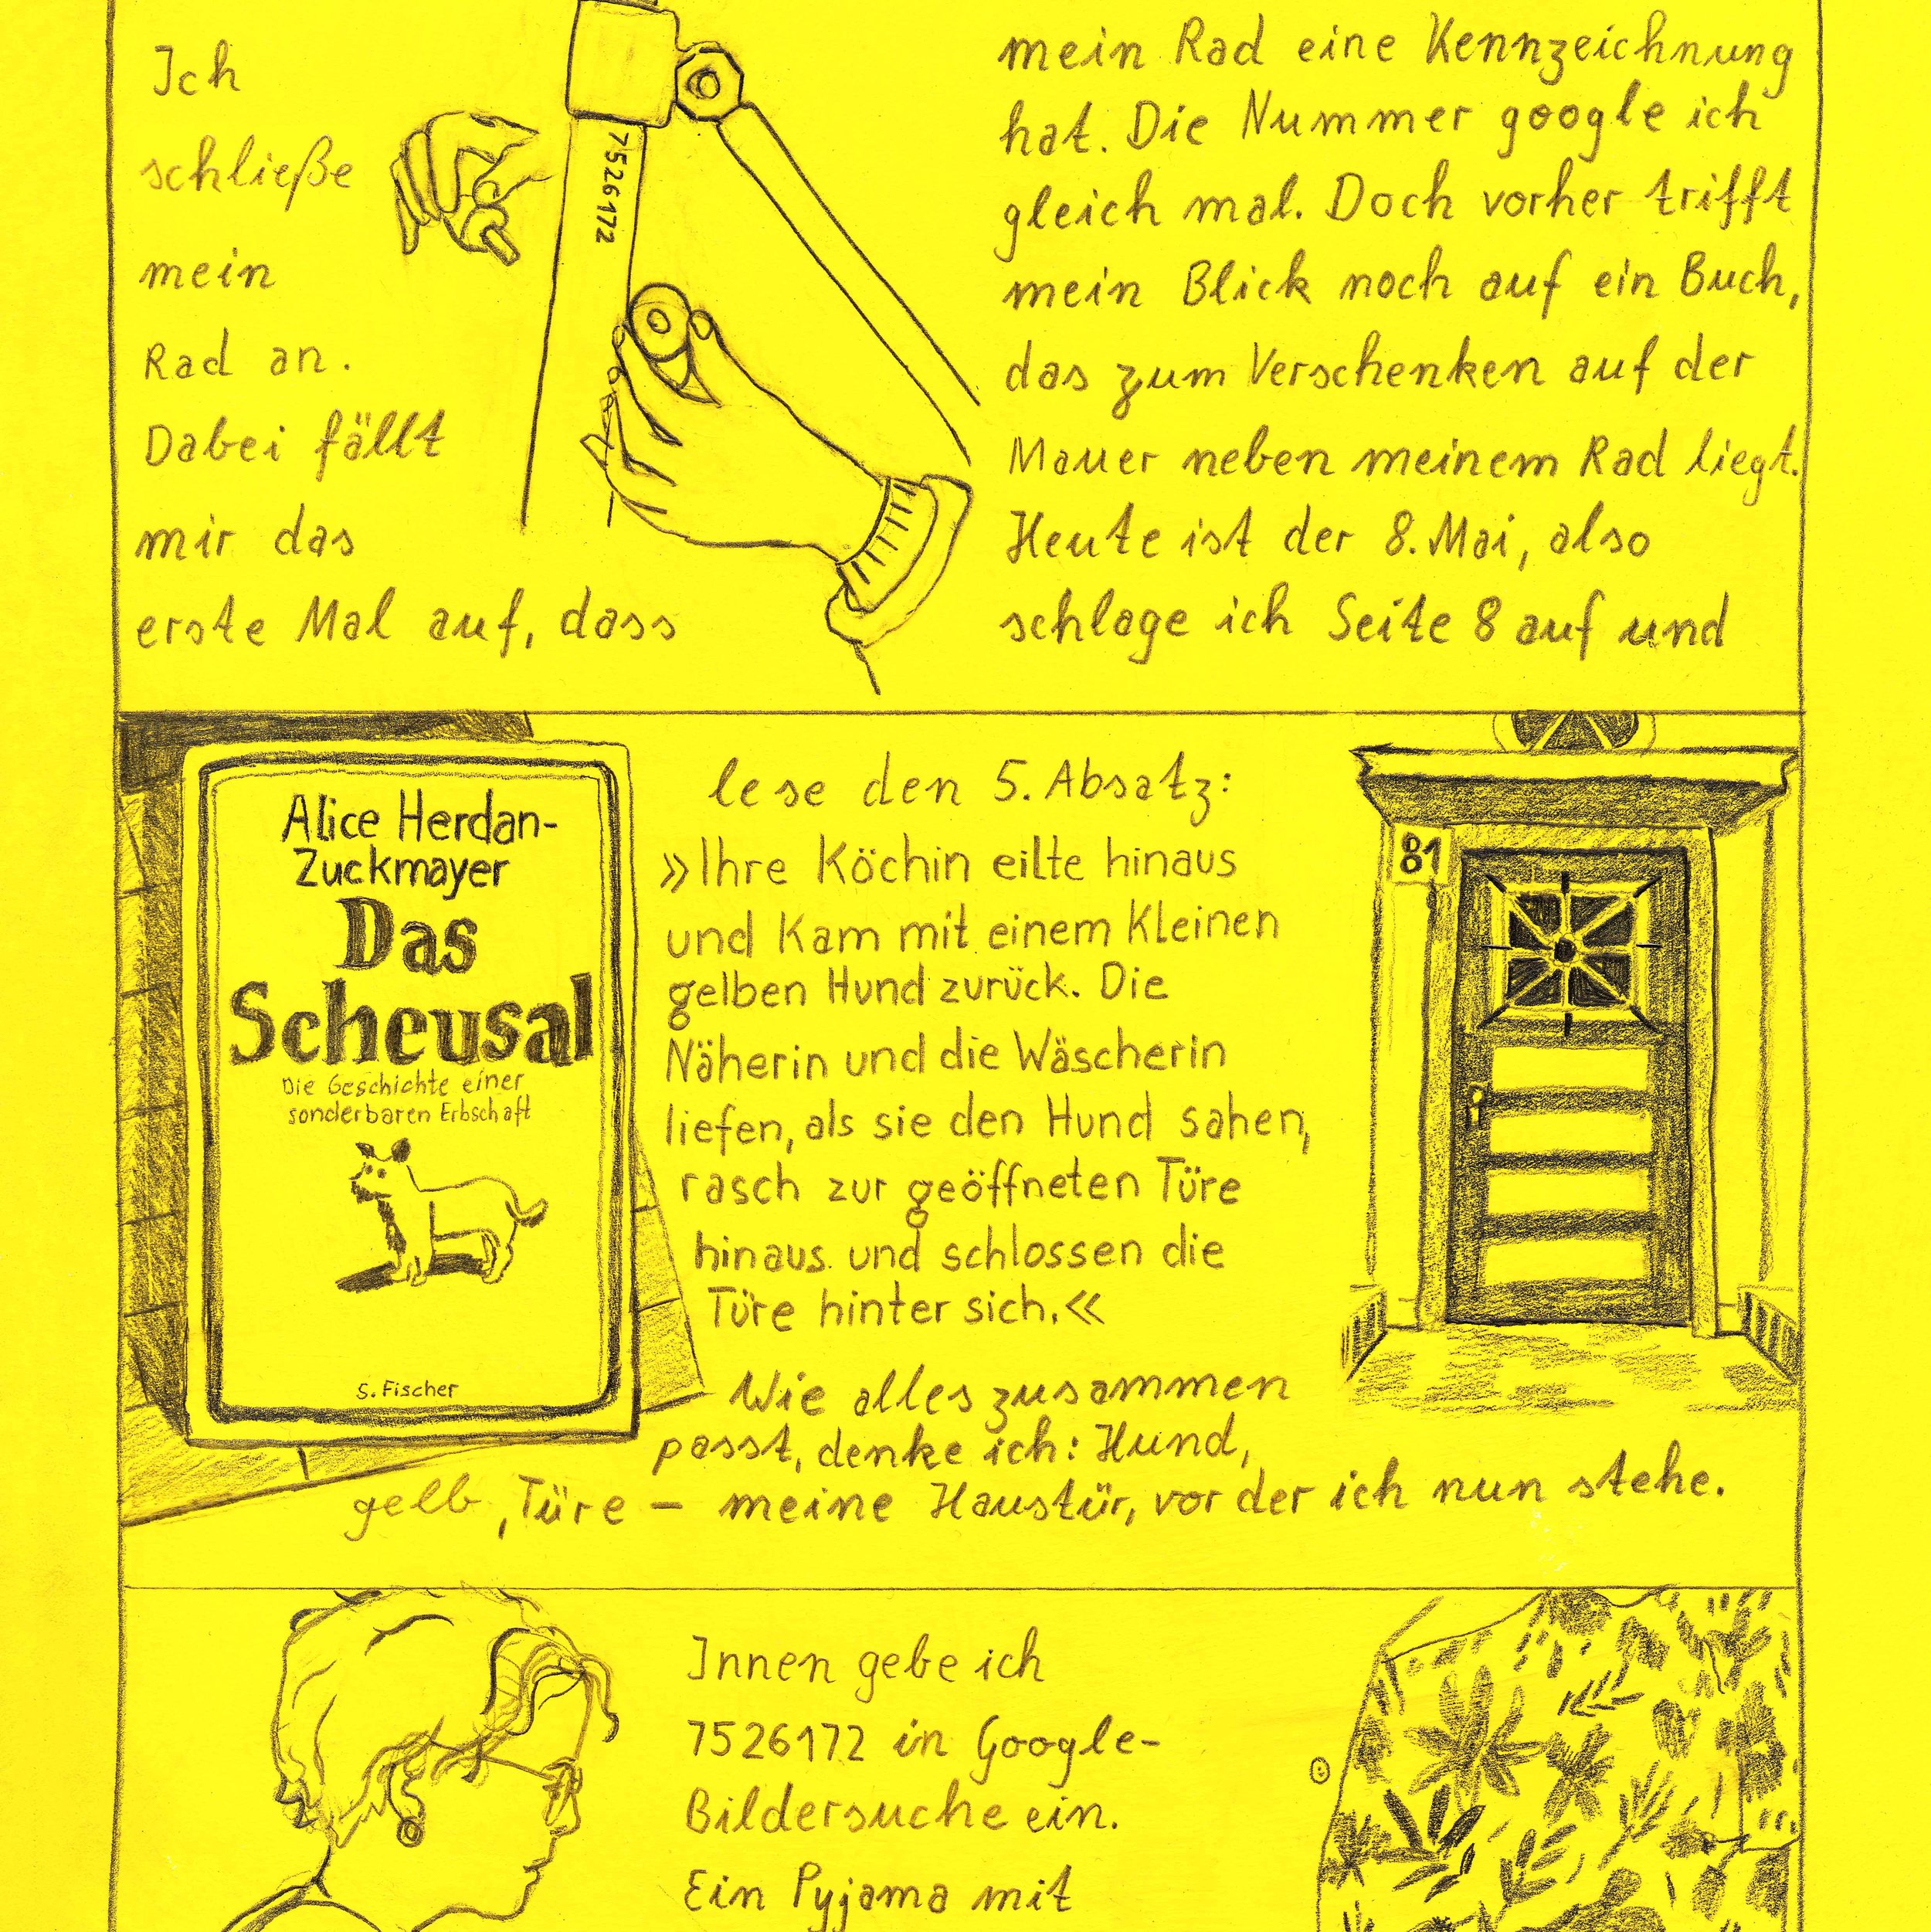 Ich
schließe
mein
Rad an.
Dabei fällt
mir das
erste Mal auf, dass
7526172
mein Rad eine Kennzeichnung
hat. Die Nummer google ich
gleich mal. Doch vorher trifft
mein Blick noch auf ein Buch,
das zum Verschenken auf der
Mauer neben meinem Rad liegt.
Heute ist der 8. Mai, also
schlage ich Seite 8 auf und
Alice Herdan-
Zuckmayer
Das
Scheusal
Die Geschichte einer
sonderbaren Erbschaft
S. Fischer
lese den 5. Absatz:
»Ihre Köchin eilte hinaus
und kam mit einem kleinen
gelben Hund zurück. Die
Näherin und die Wäscherin
liefen, als sie den Hund sahen,
rasch zur geöffneten Türe
hinaus und schlossen die
Türe hinter sich.«
Wie alles zusammen
passt, denke ich: Hund,
gelb, Türe – meine Haustür, vor der ich nun stehe.
81
Innen gebe ich
7526172 in Google-
Bildersuche ein.
Ein Pyjama mit